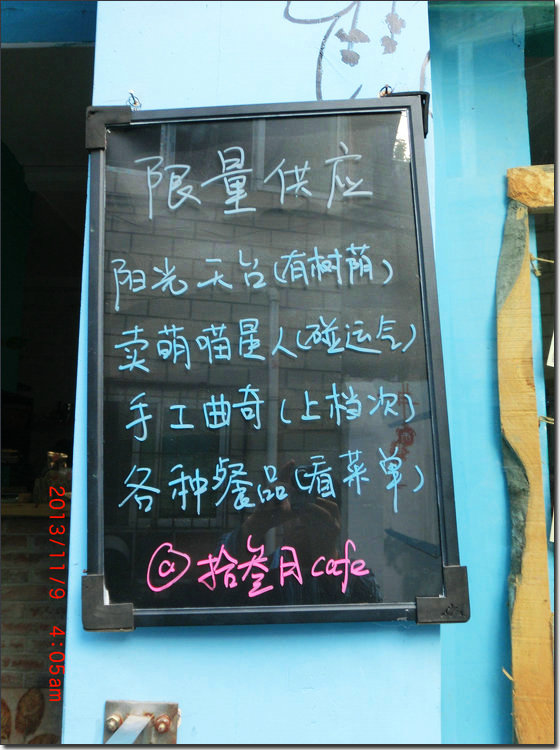 限量供应
阳光天台(有树荫)
卖萌喵星人(碰运气)
手工曲奇(上档次)
各种餐品(看菜单)
@拾叁月cafe
2013/11/9 4:05am